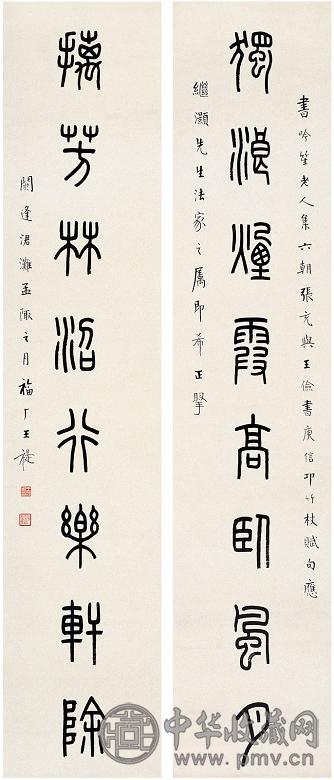 書吟笙老人集六朝張充與王儉書庾信邛竹杖賦句應
獨浪煙霞高臥風月
繼灝先生法家之屬即希正擥
摛芳林沼行樂軒除
閼逢涒灘孟陬之月福厂王禔
中华收藏网
www.pmv.cn